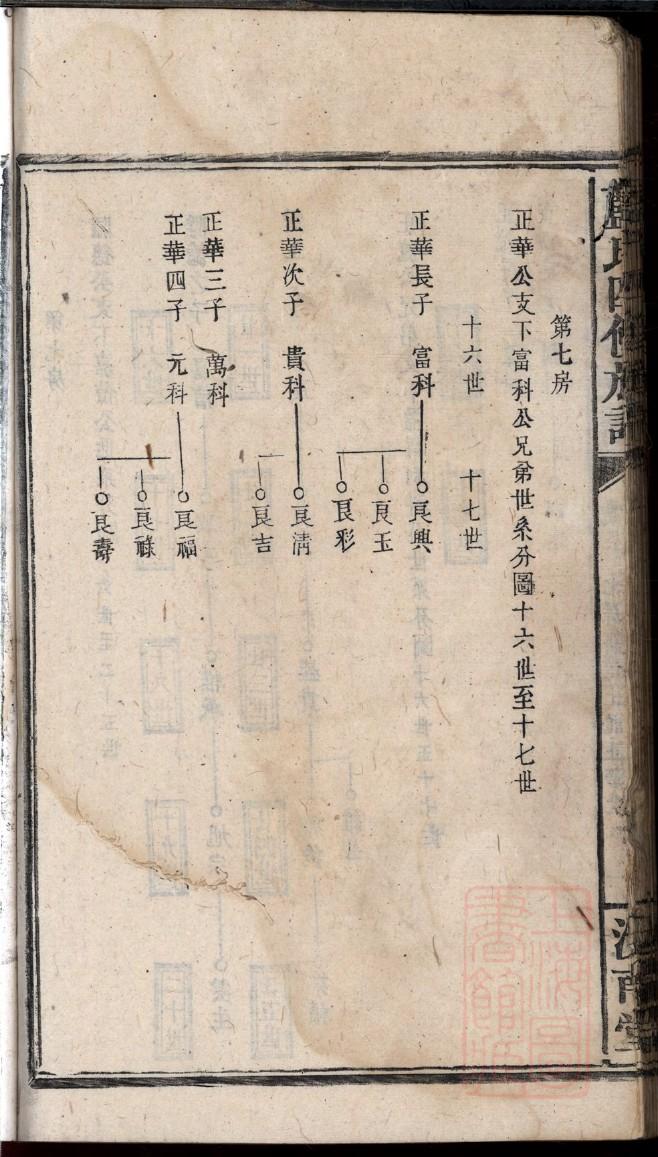 第七房
正華公支下富科公兄弟世系分圖十六世至十七世
十六世　十七世
正華長子　富科　良興
良玉
良彩
正華次子　貴科　良清
良吉
正華三子　萬科
正華四子　元科　良福
良祿
良壽
氏四修族譜
南堂